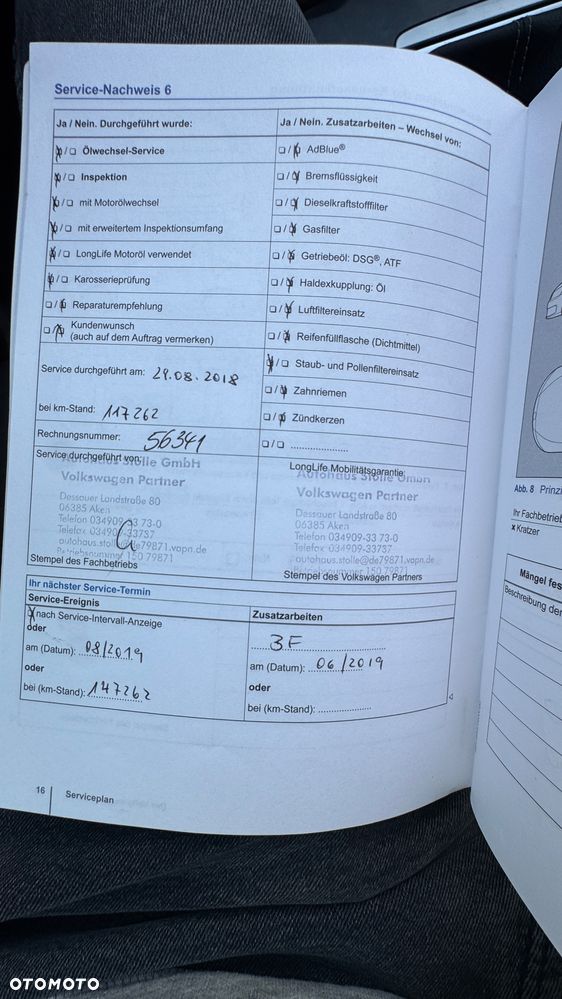 Service-Nachweis 6
Ja / Nein. Durchgeführt wurde:
Ja / Nein. Zusatzarbeiten – Wechsel von:
☒/☐ Ölwechsel-Service
☐/☒ AdBlue®
☒/☐ Inspektion
☐/☒ Bremsflüssigkeit
☒/☐ mit Motorölwechsel
☐/☒ Dieselkraftstofffilter
☒/☐ mit erweitertem Inspektionsumfang
☐/☒ Gasfilter
☒/☐ LongLife Motoröl verwendet
☐/☒ Getriebeöl: DSG®, ATF
☒/☐ Karosserieprüfung
☐/☒ Haldexkupplung: Öl
☐/☒ Reparaturempfehlung
☐/☒ Luftfiltereinsatz
☐/☒ Kundenwunsch
(auch auf dem Auftrag vermerken)
☐/☒ Reifenfüllflasche (Dichtmittel)
☒/☐ Staub- und Pollenfiltereinsatz
Service durchgeführt am: 29.08.2018
☐/☒ Zahnriemen
bei km-Stand: 117262
☐/☒ Zündkerzen
Rechnungsnummer: 56341
☐/☐ ....................
Service durchgeführt von:
Autohaus Stolle GmbH
Volkswagen Partner
Dessauer Landstraße 80
06385 Aken
Telefon 034909-33 73-0
Telefax 034909-33757
autohaus.stolle@de79871.vapn.de
Betriebsnummer 150 79871
Stempel des Fachbetriebs
LongLife Mobilitätsgarantie:
Autohaus Stolle GmbH
Volkswagen Partner
Dessauer Landstraße 80
06385 Aken
Telefon 034909-33 73-0
Telefax 034909-33757
autohaus.stolle@de79871.vapn.de
Betriebsnummer 150 79871
Stempel des Volkswagen Partners
Ihr nächster Service-Termin
Service-Ereignis
Zusatzarbeiten
☒ nach Service-Intervall-Anzeige
oder
am (Datum): 08/2019
oder
bei (km-Stand): 147262
BF
am (Datum): 06/2019
oder
bei (km-Stand): ....................
16
Serviceplan
Abb. 8 Prinzi
Ihr Fachbetrieb
x Kratzer
Mängel fes
Beschreibung der
OTOMOTO